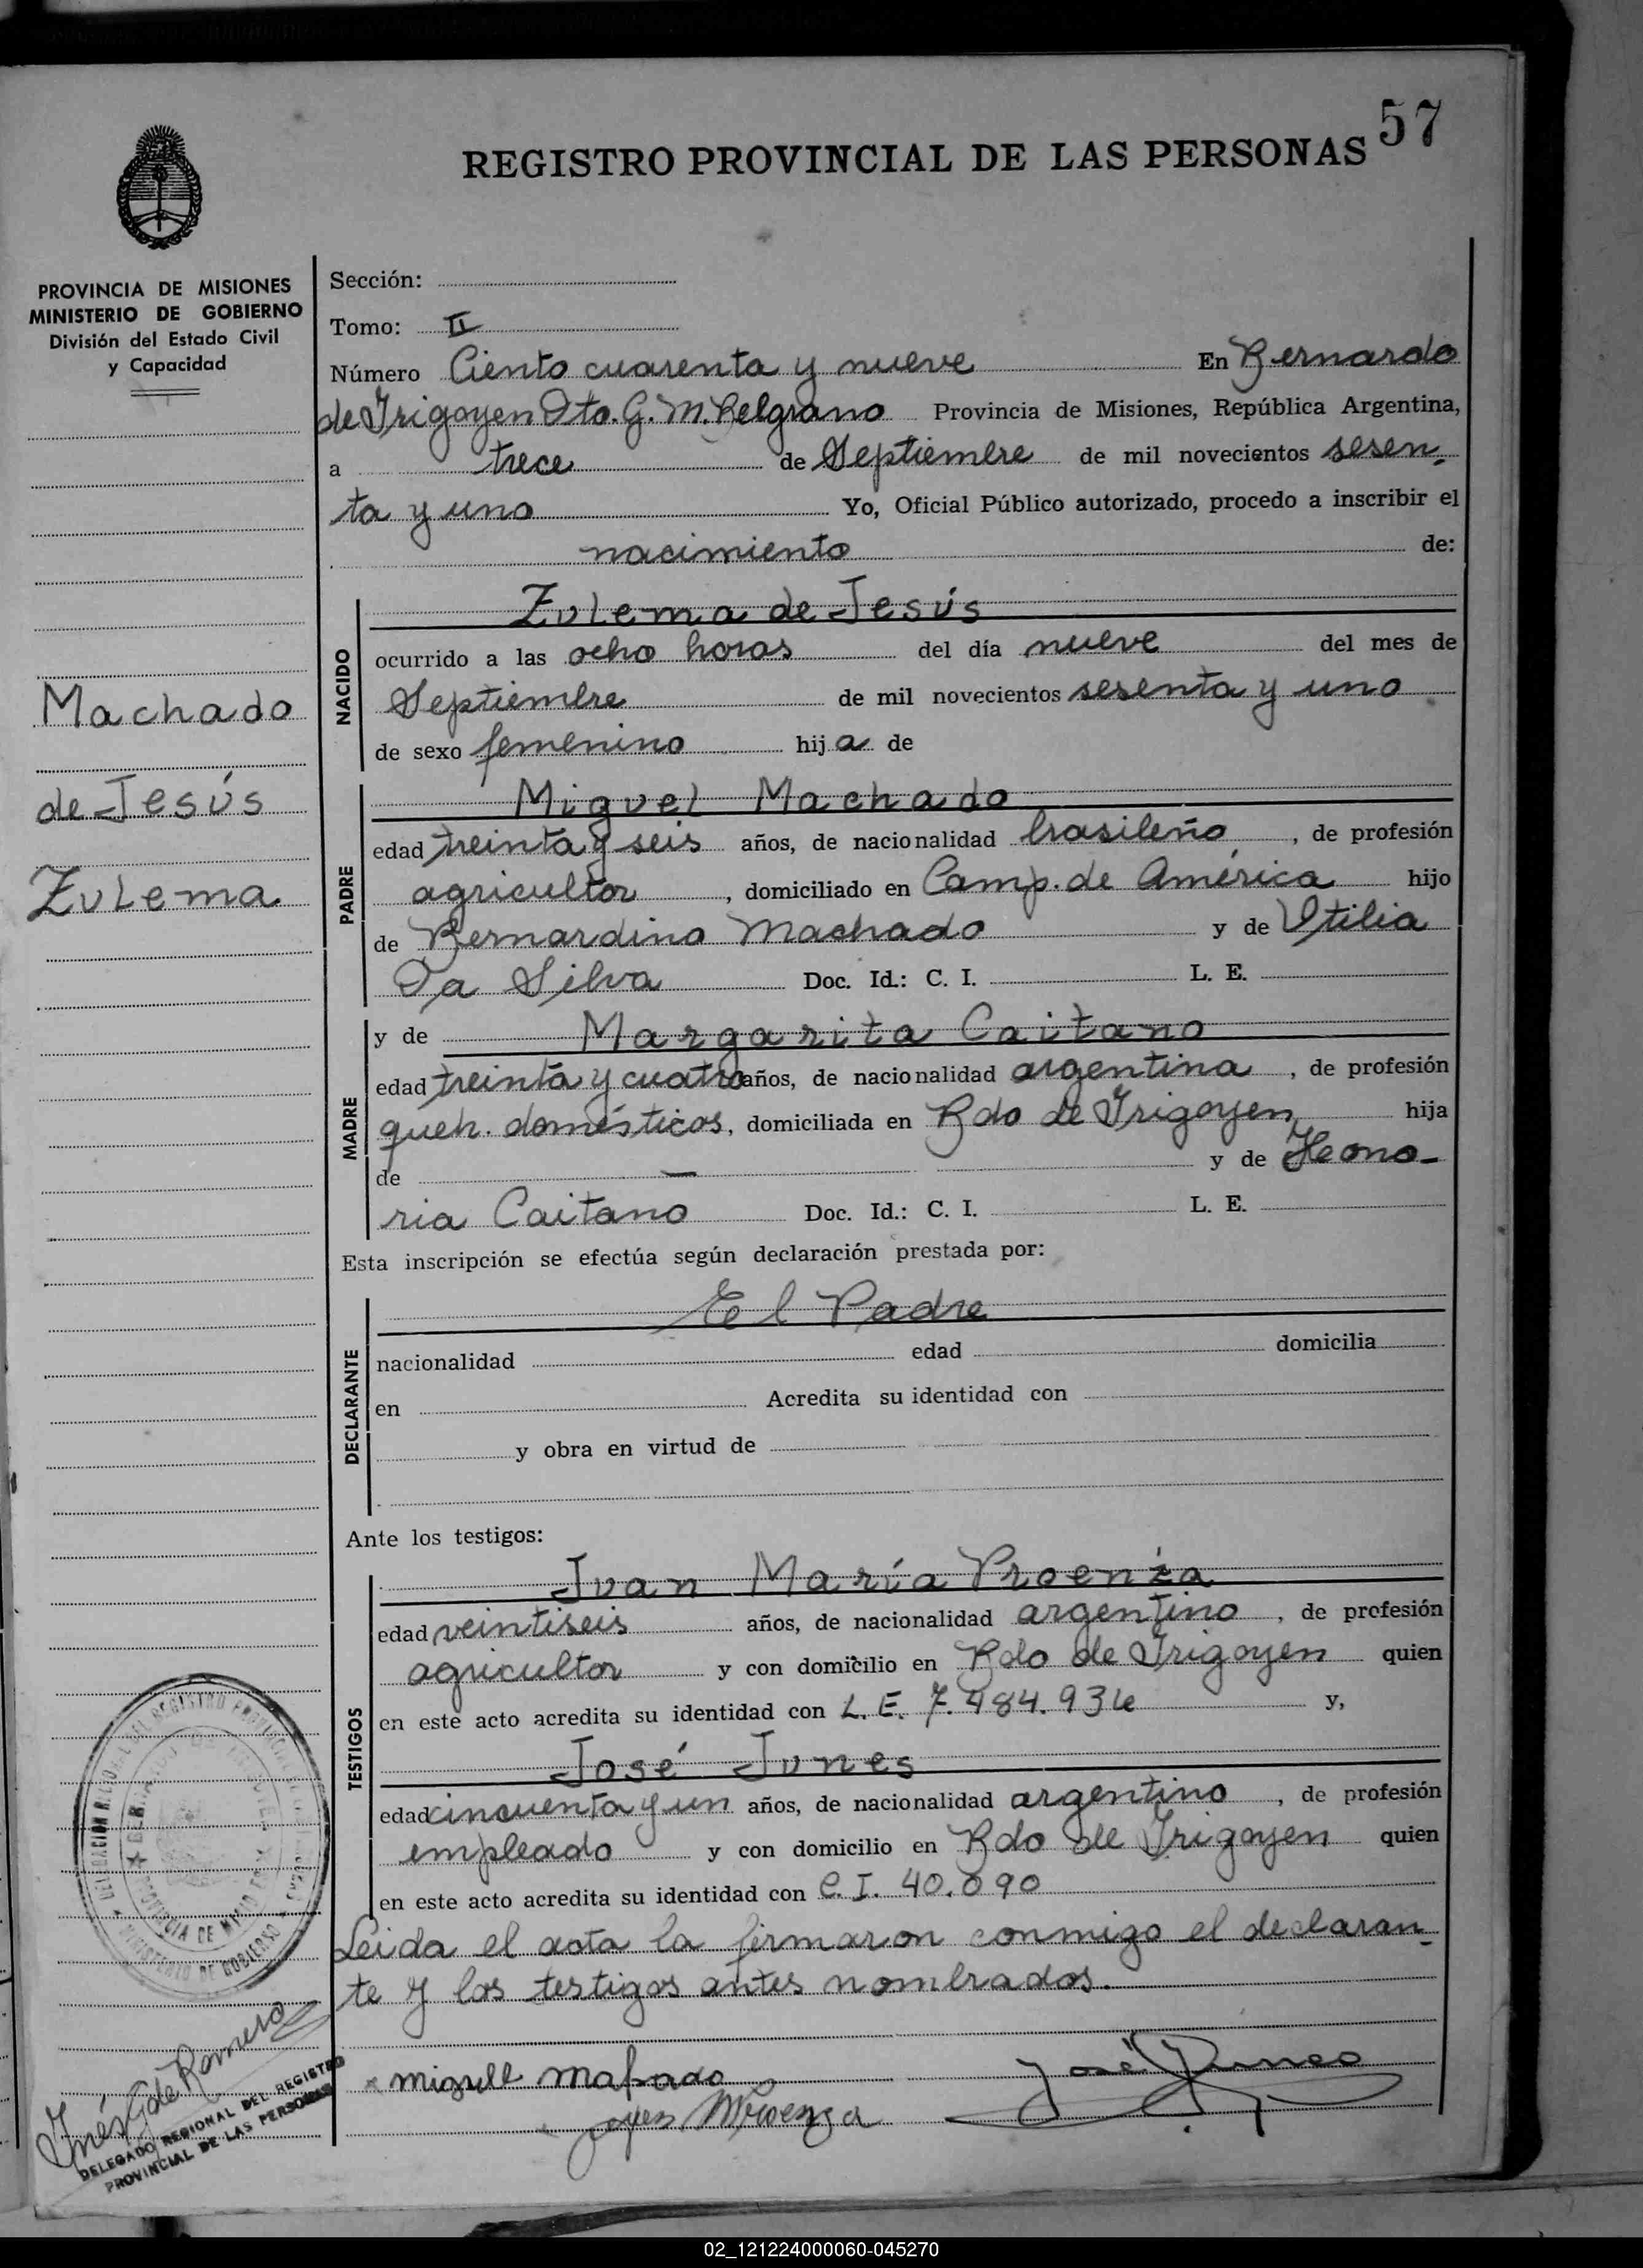 57
REGISTRO PROVINCIAL DE LAS PERSONAS
PROVINCIA DE MISIONES
MINISTERIO DE GOBIERNO
División del Estado Civil
y Capacidad
Machado
de Jesús
Zulema
Sección:
Tomo: II
Número Ciento cuarenta y nueve En Bernardo
de Irigoyen Dto. G. M. Belgrano Provincia de Misiones, República Argentina,
a trece de Septiembre de mil novecientos sesen-
ta y uno Yo, Oficial Público autorizado, procedo a inscribir el
nacimiento de:
NACIDO
Zulema de Jesús
ocurrido a las ocho horas del día nueve del mes de
Septiembre de mil novecientos sesenta y uno
de sexo femenino hija de
PADRE
Miguel Machado
edad treinta y seis años, de nacionalidad brasileño, de profesión
agricultor, domiciliado en Camp. de América hijo
de Bernardino Machado y de Otilia
Da Silva Doc. Id.: C. I. L. E.
MADRE
y de Margarita Caitano
edad treinta y cuatro años, de nacionalidad argentina, de profesión
queh. domésticos, domiciliada en Bdo de Irigoyen hija
de — y de Heono-
ria Caitano Doc. Id.: C. I. L. E.
Esta inscripción se efectúa según declaración prestada por:
DECLARANTE
El Padre
nacionalidad edad domicilia
en Acredita su identidad con
y obra en virtud de
Ante los testigos:
TESTIGOS
Juan María Proenza
edad veintiseis años, de nacionalidad argentino, de profesión
agricultor y con domicilio en Bdo de Irigoyen quien
en este acto acredita su identidad con L. E. 7.484.934 y,
José Junes
edad cincuenta y un años, de nacionalidad argentino, de profesión
empleado y con domicilio en Bdo de Irigoyen quien
en este acto acredita su identidad con C. I. 40.090
Leida el acta la firmaron conmigo el declaran-
te y los testigos antes nombrados.
miguell
José Junes
Inés G de Romero
DELEGADO REGIONAL DEL REGISTRO
PROVINCIAL DE LAS PERSONAS
PROVINCIA DE MISIONES
MINISTERIO DE GOBIERNO
02_121224000060-045270